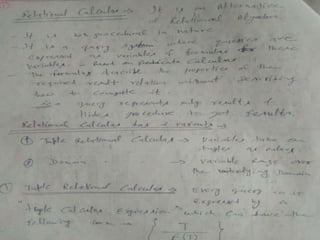 Relational Calculus → It is an Alternative
of Relational Algebra
It is non procedural in nature
It is a query system where queries are
expressed as variables & formulas on these
variables - Based on predicate Calculus
the formulas describe the properties of the
required result relation without describing
how to compute it.
query represents only results &
Hides procedure to get Results.
Relational Calculus has 2 variants
① Tuple Relational Calculus → Variables take on
tuples as values
② Domain → Variables Range over
the underlying Domain
① Tuple Relational Calculus → Every query in is
expressed by a
"Tuple Calculus Expression" which can have the
following form is { T
F(T) }